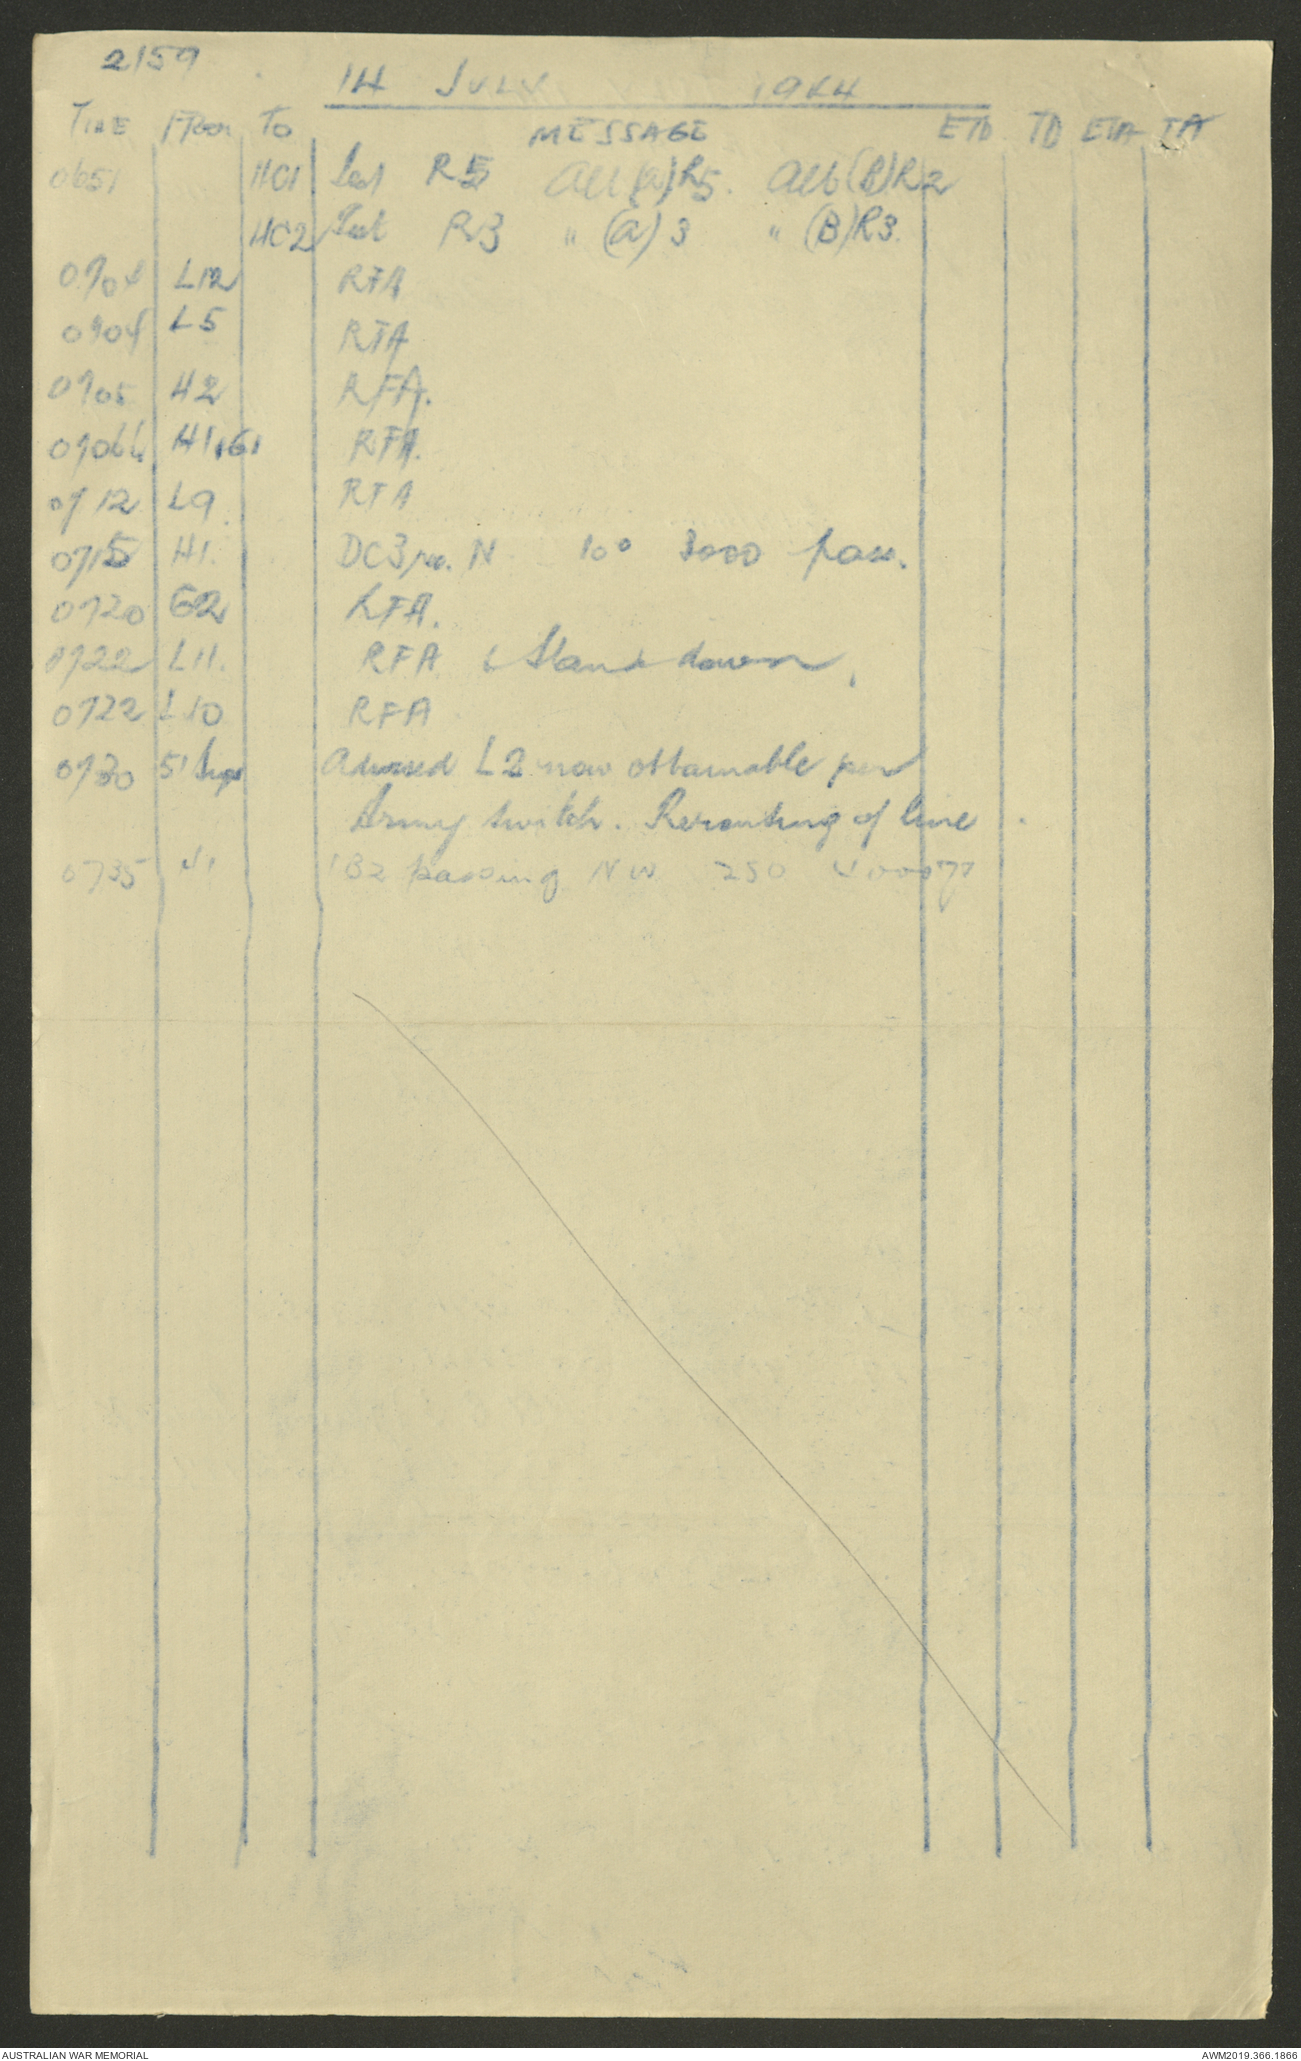 2159
14 JULY 1944
TIME FROM TO MESSAGE ETD TD ETA TA
0651 HC1 Test R5 Alt (A) R5. Alt (B) R2
HC2 Test R3 " (A) 3 " (B) R3.
0704 L12 RFA
0704 L5 RFA
0705 H2 RFA.
0706 H1, G1 RFA.
0712 L9 RFA
0715 H1. DC3 N 10° 3000 pass.
0720 G2 RFA.
0722 L11. RFA & Stand down.
0722 L10 RFA
0730 51 Sigs Advised L2 now obtainable per
Army switch. Rerouting of line.
0735 J1 1B2 passing NW 250 4000
AUSTRALIAN WAR MEMORIAL AWM2019.366.1866